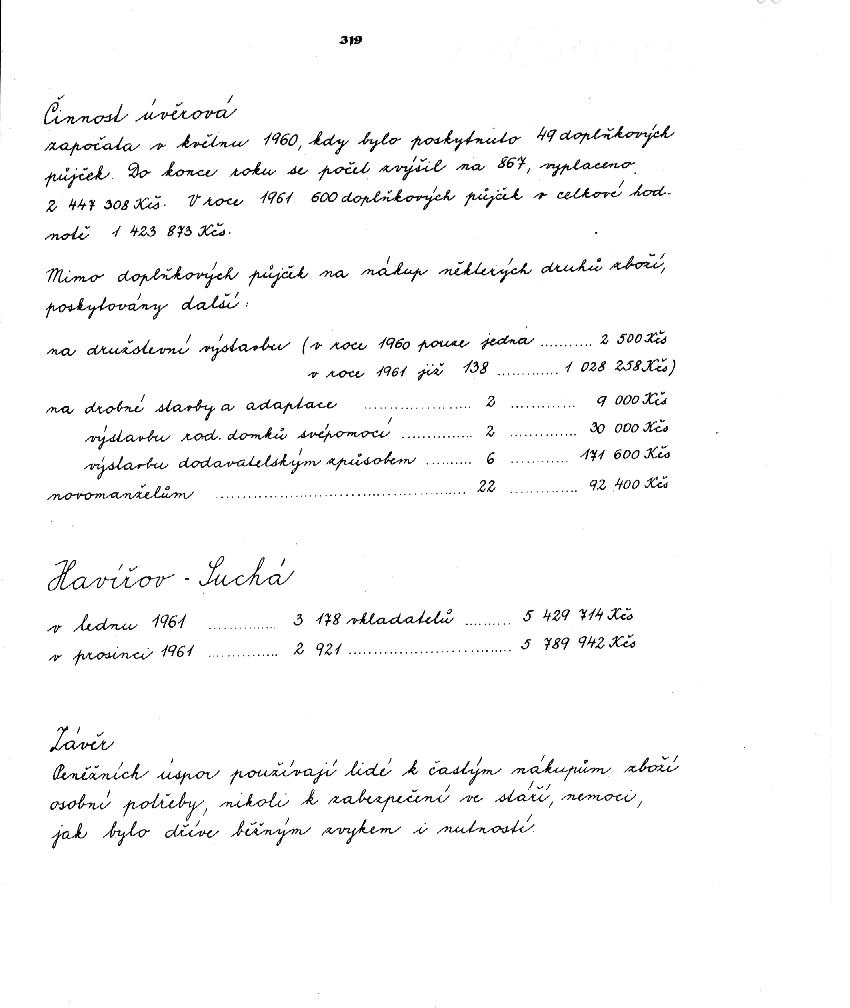 319
Činnost úvěrová
započata v květnu 1960, kdy bylo poskytnuto 49 doplňkových
půjček. Do konce roku se počet zvýšil na 867, vyplaceno
2 447 308 Kčs. V roce 1961 600 doplňkových půjček v celkové hod-
notě 1 423 873 Kčs.
Mimo doplňkových půjček na nákup některých druhů zboží,
poskytovány další:
na družstevní výstavbu (v roce 1960 pouze jedna ........... 2 500 Kčs
v roce 1961 již 138 ............. 1 028 258 Kčs)
na drobné stavby a adaptace ...................... 2 ............. 9 000 Kčs
výstavbu rod. domků svépomocí ............... 2 .............. 30 000 Kčs
výstavbu dodavatelským způsobem .......... 6 ............ 171 600 Kčs
novomanželům .................................................... 22 .............. 92 400 Kčs
Havířov - Suchá
v lednu 1961 ............... 3 178 vkladatelů .......... 5 429 714 Kčs
v prosinci 1961 ............... 2 921 .................................. 5 789 942 Kčs
Závěr
Peněžních úspor používají lidé k častým nákupům zboží
osobní potřeby, nikoli k zabezpečení ve stáří, nemoci,
jak bylo dříve běžným zvykem i nutností.